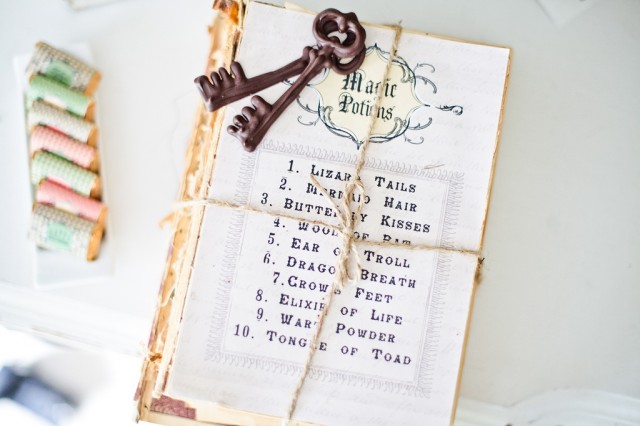 Magic
Potions
1. Lizard Tails
2. Mermaid Hair
3. Butterfly Kisses
4. Wool of Bat
5. Ear of Troll
6. Dragon Breath
7. Crows Feet
8. Elixir of Life
9. Wart Powder
10. Tongue of Toad